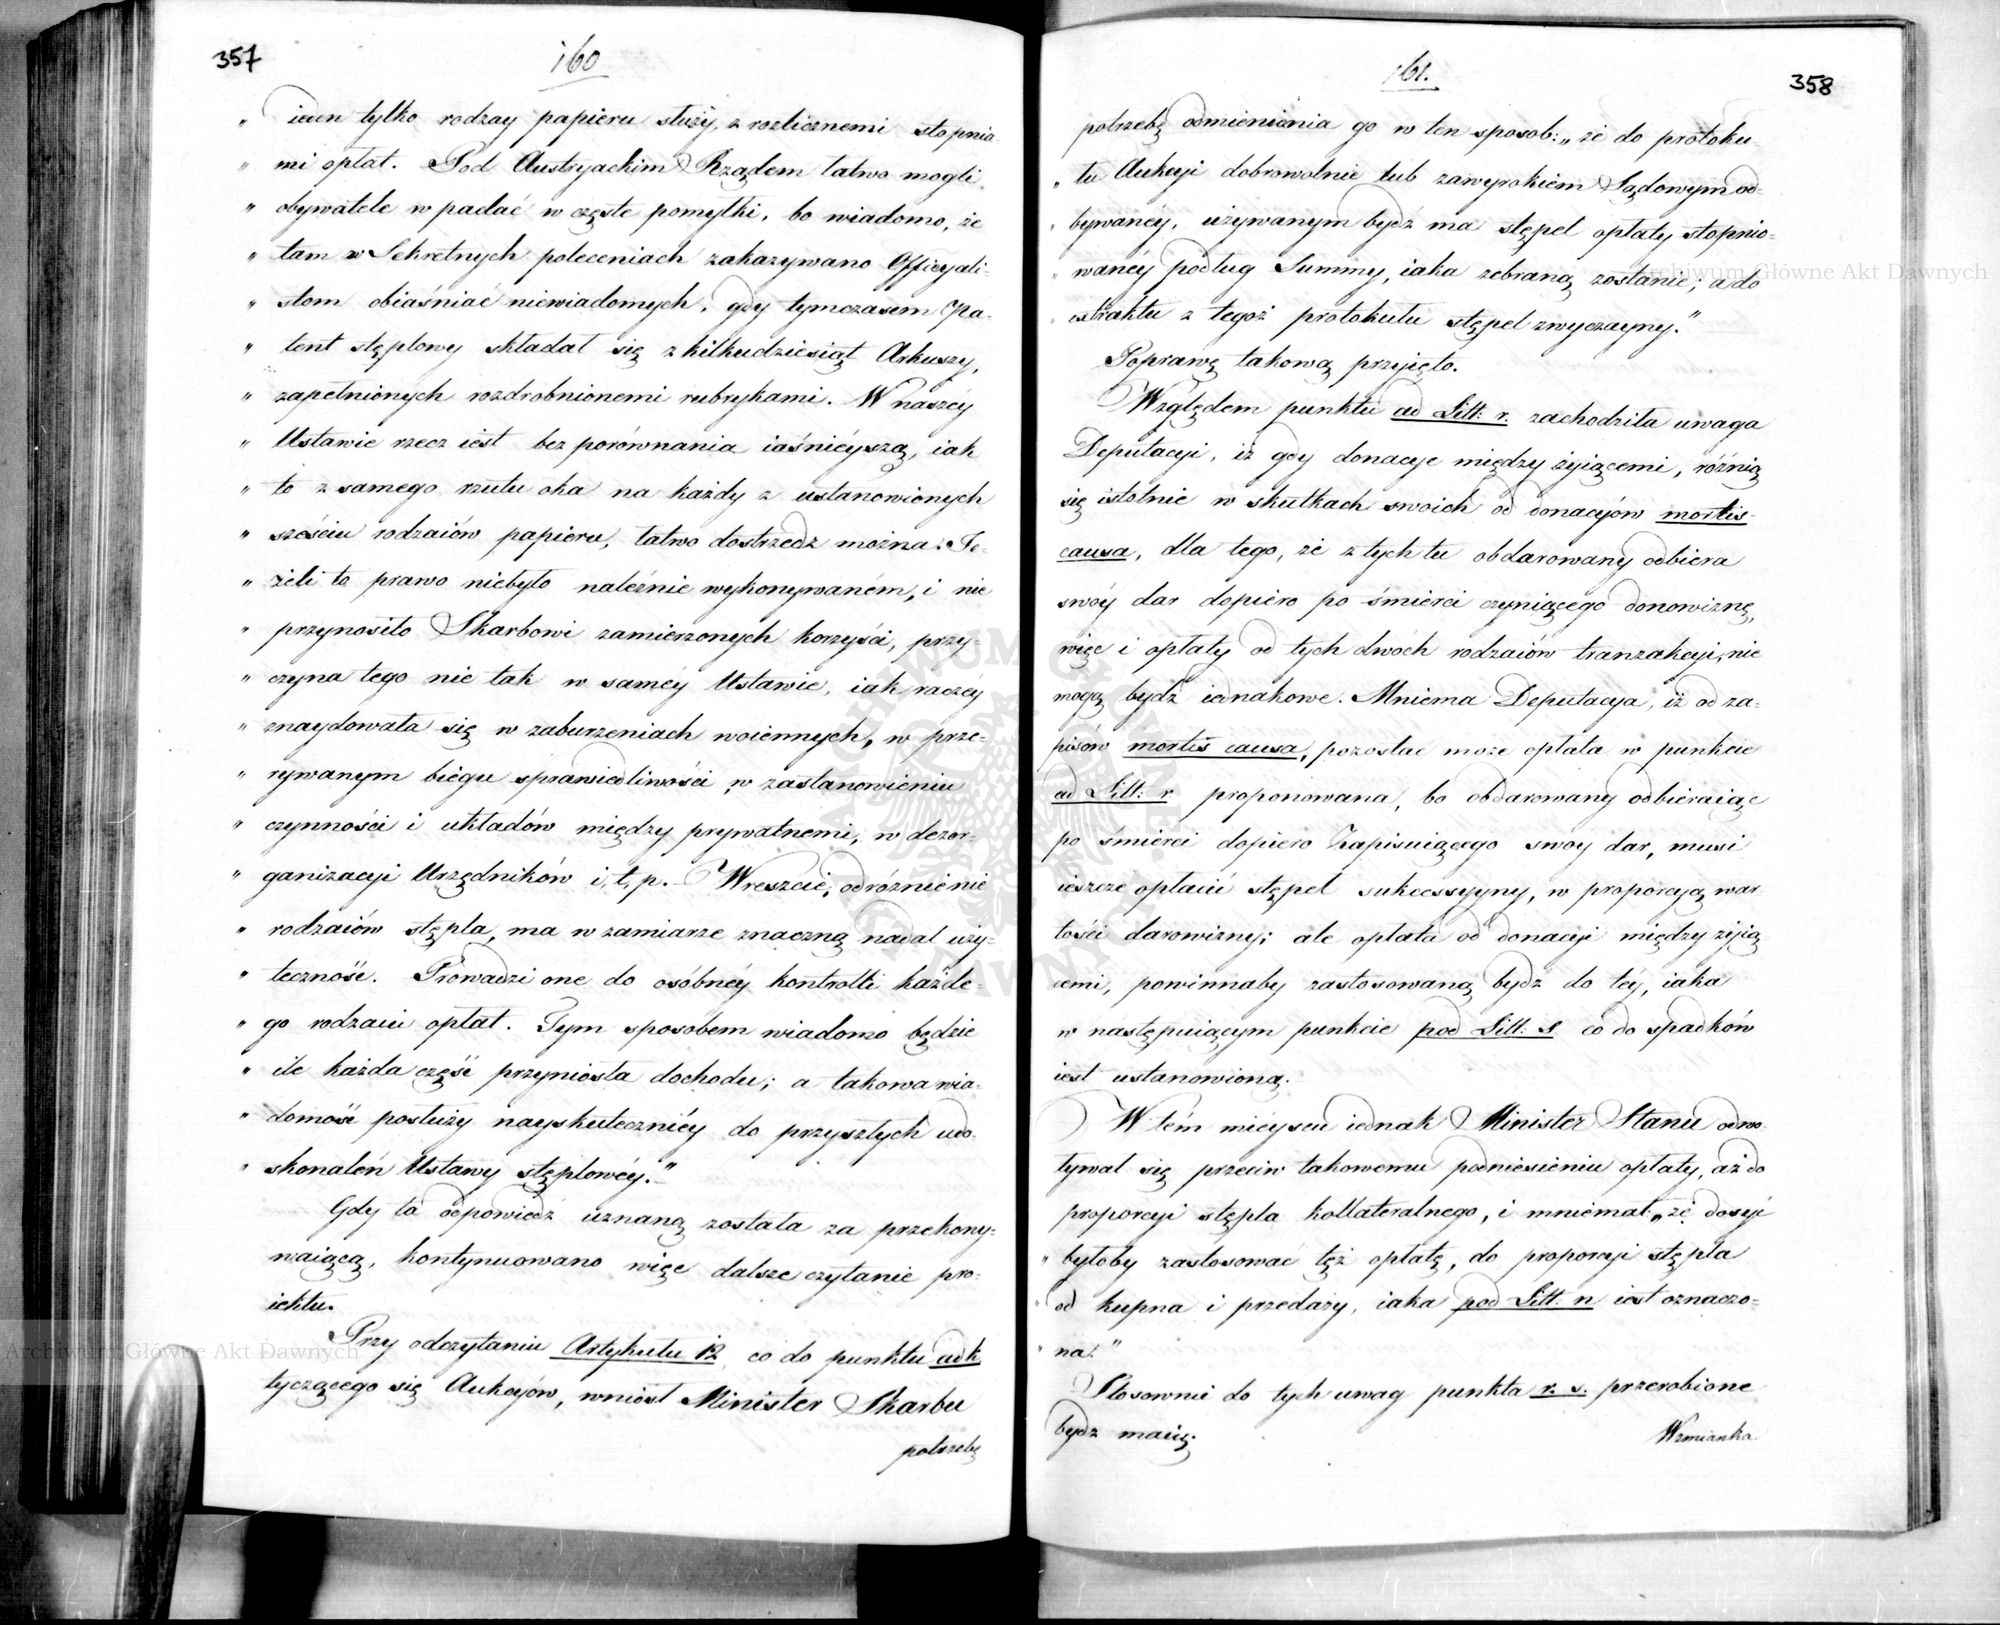 357
160
„ ieden tylko rodzay papieru służy, z rozlicznemi stopnia-
„ mi opłat. Pod Austryackim Rządem łatwo mogli
„ obywatele wpadać w częste pomyłki, bo wiadomo, że
„ tam w Sekretnych poleceniach zakazywano Officyali-
„ stom obiaśniać niewiadomych, gdy tymczasem Pa-
„ tent stęplowy składał się z kilkudziesiąt Arkuszy,
„ zapełnionych rozdrobnionemi rubrykami. W naszéy
„ Ustawie rzecz iest bez porównania iaśnieyszą, iak
„ to z samego rzutu oka na każdy z ustanowionych
„ sześciu rodzaiów papieru, łatwo dostrzedz można. Je-
„ żeli to prawo niebyło należnie wykonywaném, i nie
„ przynosiło Skarbowi zamierzonych korzyści, przy-
„ czyna tego nie tak w saméy Ustawie, iak raczéy
„ znaydowała się w zaburzeniach woiennych, w prze-
„ rywanym biegu sprawiedliwości, w zastanowieniu
„ czynności i układów między prywatnemi, w dezor-
„ ganizacyi Urzędników i, t, p. – Wreszcie, odróżnienie
„ rodzaiów stępla, ma w zamiarze znaczną nadal uży-
„ teczność. Prowadzi one do osóbnéy kontrolli każde-
„ go rodzaiu opłat. Tym sposobem wiadomo będzie
„ ile każda część przyniosła dochodu; a takowa wia-
„ domość posłuży nayskuteczniéy do przyszłych udo-
„ skonaleń Ustawy stęplowéy.”
Gdy ta odpowiedź uznaną została za przekony-
waiącą, kontynuowano więc dalsze czytanie pro-
iektu.
Przy odczytaniu Artykułu 12, co do punktu ad k
tyczącego się Aukcyów, wniosł Minister Skarbu
potrzebę
161.
358
potrzebę odmienienia go w ten sposob: „że do protoku-
„ łu Aukcyi dobrowolnie lub zawyrokiem Sądowym od-
„ bywanéy, używanym bydź ma stępel opłaty stopnio-
„ wanéy podług Summy, iaka zebraną zostanie; a do
„ extraktu z tegoż protokułu stępel zwyczayny.”
Poprawę takową przyięto.
Względem punktu ad Litt: r. zachodziła uwaga
Deputacyi, iż gdy donacye między żyiącemi, różnią
się istotnie w skutkach swoich od donacyów mortis
causa, dla tego, że z tych tu obdarowany odbiera
swóy dar dopiero po śmierci czyniącego donowiznę,
więc i opłaty od tych dwóch rodzaiów tranzakcyi, nie
mogą bydź iednakowe. Mniema Deputacya, iż od za-
pisów mortis causa, pozostać może opłata w punkcie
ad Litt: r proponowana, bo obdarowany odbieraiąc
po śmierci dopiero Zapisuiącego swoy dar, musi
ieszcze opłacić stępel sukcessyyny, w proporcyą war-
tości darowizny; ale opłata od donacyi między żyią-
cemi, powinnaby zastosowaną bydź do téy, iaka
w następuiącym punkcie pod Litt: s co do spadków
iest ustanowioną.
W tém mieyscu iednak Minister Stanu odwo-
ływał się przeciw takowemu podniesieniu opłaty, aż do
proporcyi stępla kollateralnego, i mniemał „że dosyć
„ byłoby zastosować też opłatę, do proporcyi stępla
„ od kupna i przedaży, iaka pod Litt: n iest oznaczo-
„ na.”
Stosownie do tych uwag punkta r. s. przerobione
bydz maią.
Wzmianka
Archiwum Główne Akt Dawnych
Archiwum Główne Akt Dawnych